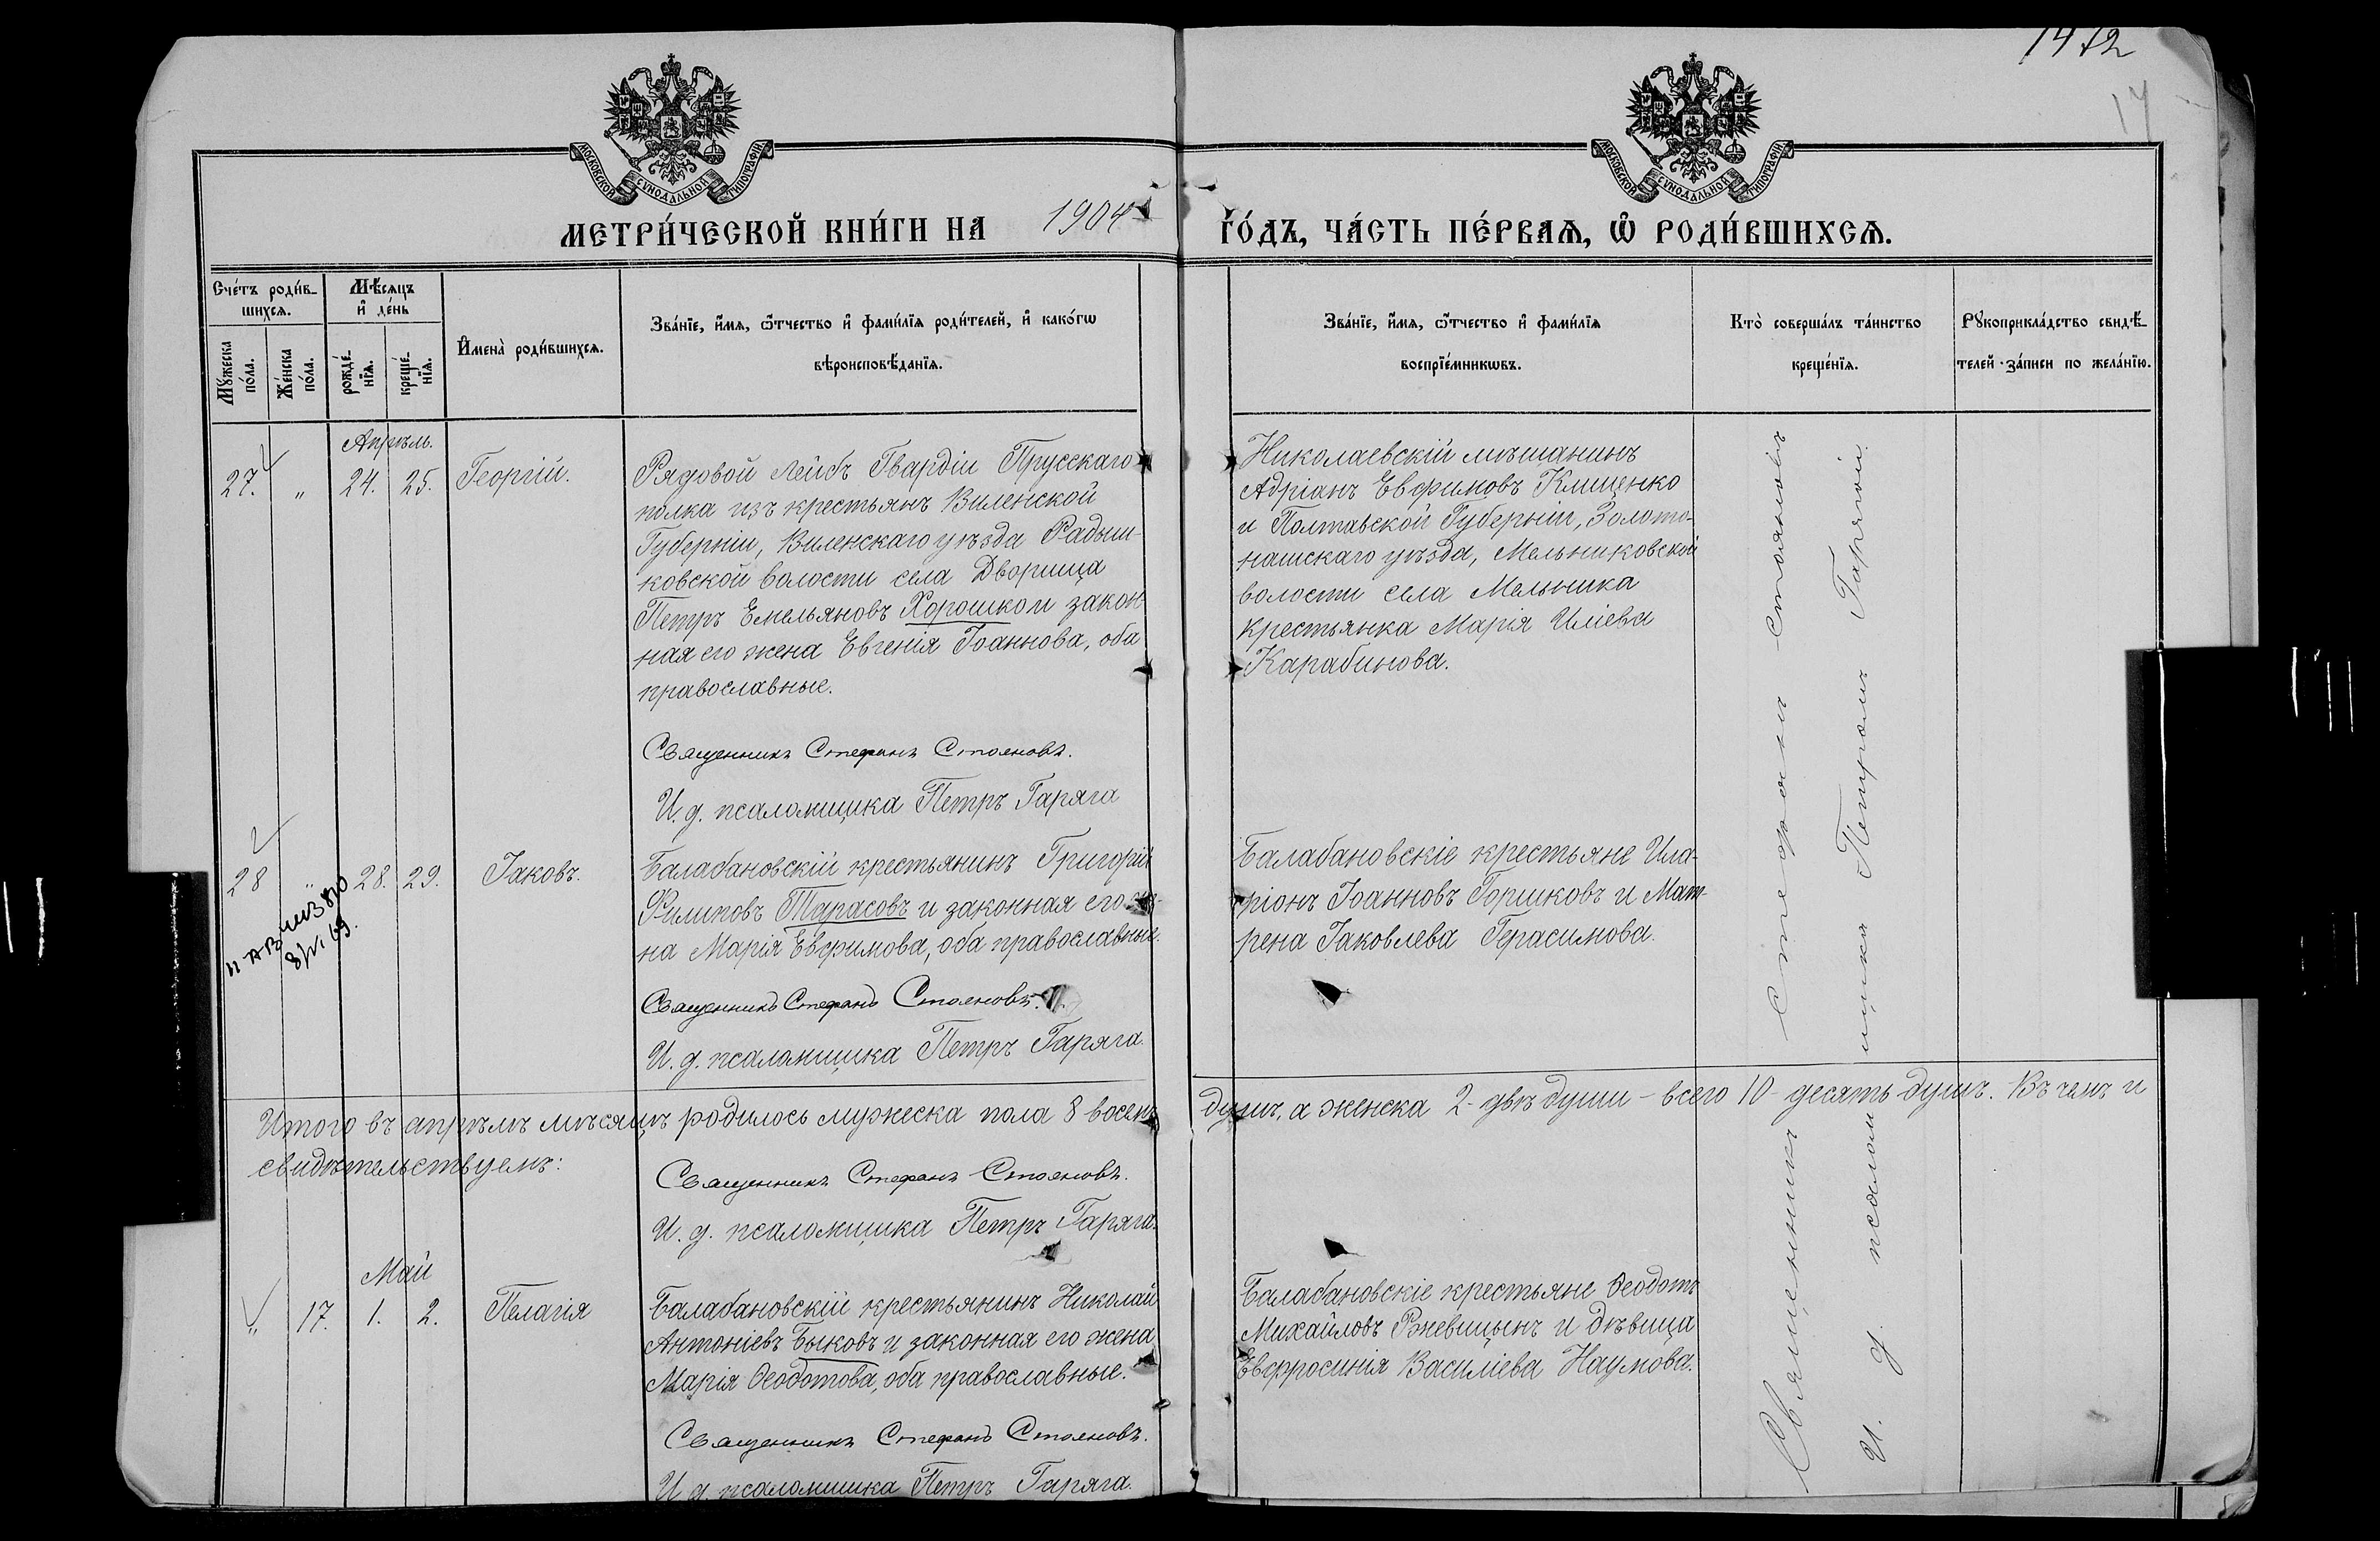 1472
14
МОСКОВСКОЙ СУНОДАЛЬНОЙ ТИПОГРАФІИ
МОСКОВСКОЙ СУНОДАЛЬНОЙ ТИПОГРАФІИ
МЕТРИ́ЧЕСКОЙ КНИ́ГИ НА 1904 ГО́ДЪ, ЧА́СТЬ ПЕ́РВАѦ, Ѡ РОДИ́ВШИХСѦ.
Сче́тъ роди́в-
шихсѧ.
Мѣ́сѧцъ
и҆ де́нь
Мꙋ́жеска
по́ла.
Же́нска
по́ла.
рожде́-
нїѧ.
креще́-
нїѧ.
И҆мена̀ роди́вшихсѧ.
Зва́нїе, и҆́мѧ, ѻ҆́тчество и҆ фами́лїѧ роди́телей, и҆ како́гѡ
вѣроисповѣ́данїѧ.
Зва́нїе, и҆́мѧ, ѻ҆́тчество и҆ фами́лїѧ
воспрїе́мникѡвъ.
Кто̀ соверша́лъ та́инство
креще́нїѧ.
Рꙋкоприкла́дство свидѣ́-
телей за́писи по жела́нїю.
Апрѣль.
27. " 24. 25. Георгій.
Рядовой Лейбъ Гвардіи Прусскаго
полка изъ крестьянъ Виленской
Губерніи, Виленскаго уѣзда Радыш-
ковской волости села Дворища
Петръ Емельяновъ Хорошко и закон-
ная его жена Евгенія Іоаннова, оба
православные.
Священникъ Стефанъ Стояновъ.
И. д. псаломщика Петръ Гаряга
Николаевскій мѣщанинъ
Адріанъ Евфимовъ Клищенко
и Полтавской Губерніи, Золото-
ношскаго уѣзда, Мельниковской
волости села Мельника
крестьянка Марія Иліева
Карабинова.
28 " 28. 29. Іаковъ.
Балабановскій крестьянинъ Григорій
Филиповъ Тарасовъ и законная его же-
на Марія Евфимова, оба православные.
Священникъ Стефанъ Стояновъ.
И. д. псаломщика Петръ Гаряга.
Балабановскіе крестьяне Ила-
ріонъ Іоанновъ Горшковъ и Мат-
рена Іаковлева Герасимова.
Итого въ апрѣлѣ мѣсяцѣ родилось мужеска пола 8 восемь душъ, а женска 2- двѣ души - всего 10 - десять душъ. Въ чемъ и
свидѣтельствуемъ:
Священникъ Стефанъ Стояновъ.
И. д. псаломщика Петръ Гаряга.
Май
" 17. 1. 2. Пелагія
Балабановскій крестьянинъ Николай
Антоніевъ Быковъ и законная его жена
Марія Ѳеодотова, оба православные.
Священникъ Стефанъ Стояновъ.
И. д. псаломщика Петръ Гаряга.
Балабановскіе крестьяне Ѳеодотъ
Михайловъ Ржевицынъ и дѣвица
Евфросинія Василіева Наумова.
Священникъ Стефанъ Стояновъ
И. д. псаломщика Петромъ Гарягой.